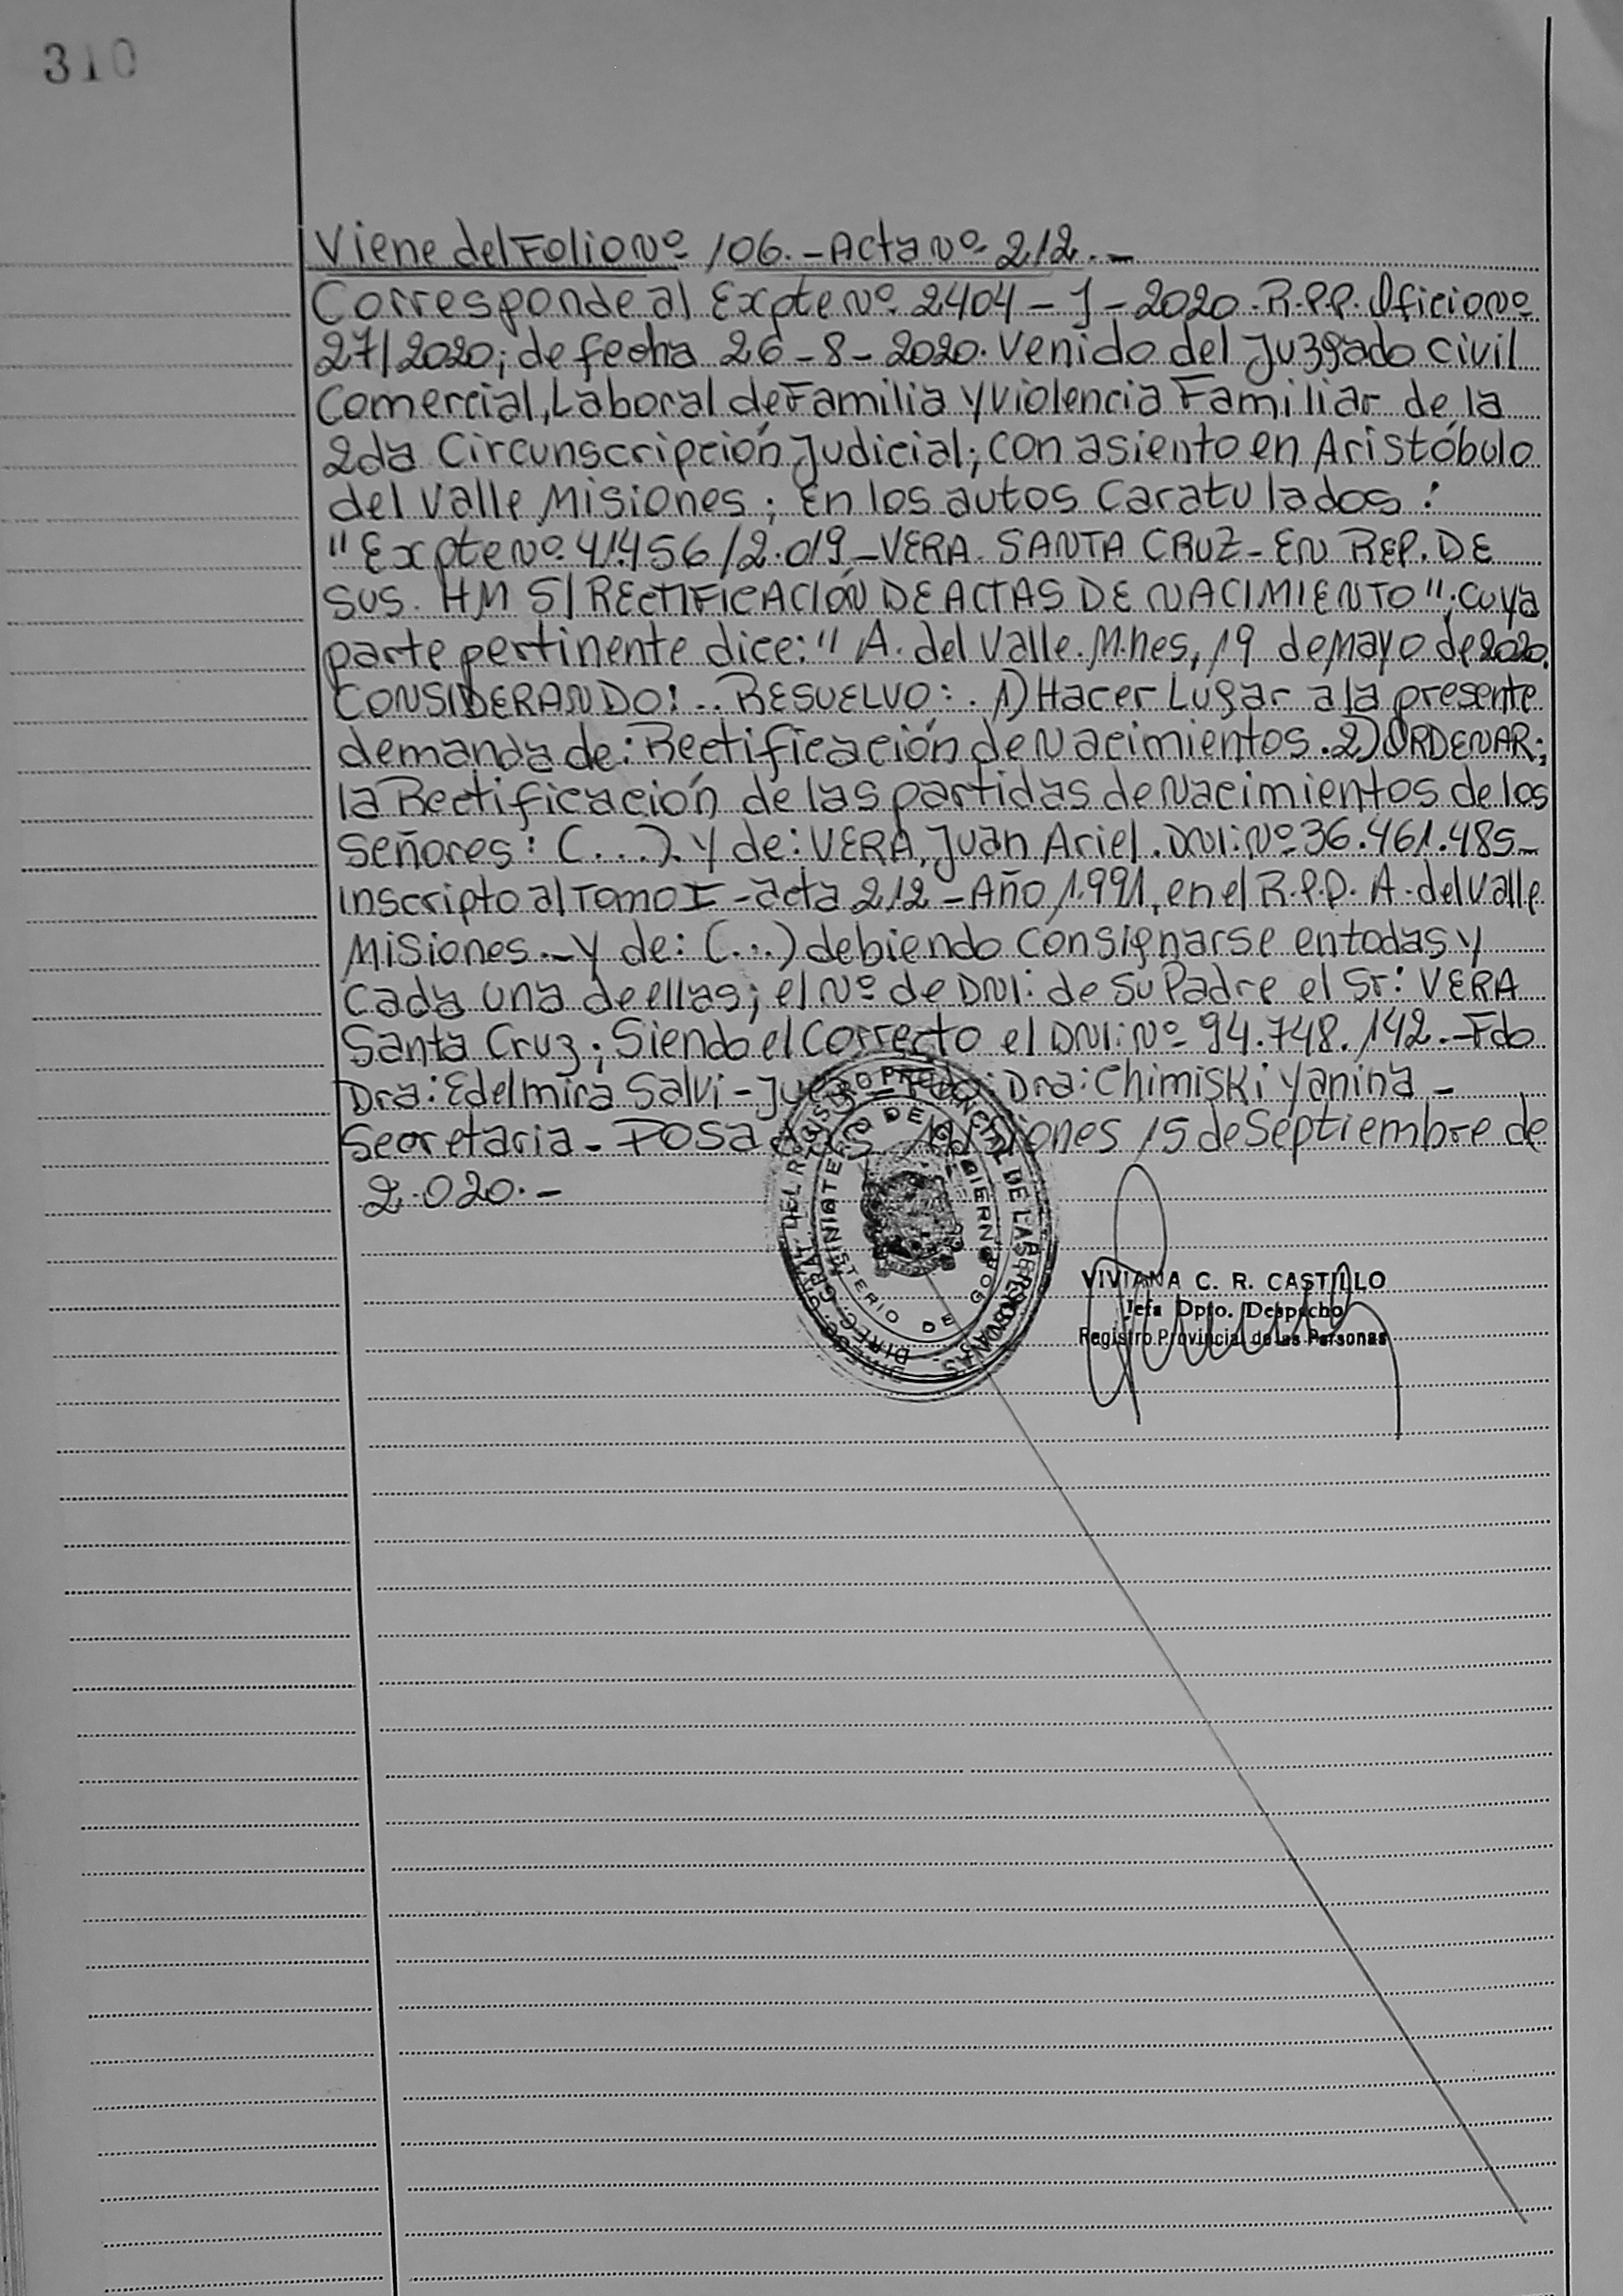 310
Viene del Folio Nº 106.- Acta Nº 212.-
Corresponde al Expte Nº 2404-J-2020. R.P.P. Oficio Nº
27/2020; de fecha 26-8-2020. Venido del Juzgado Civil
Comercial, Laboral de Familia y Violencia Familiar de la
2da Circunscripción Judicial; con asiento en Aristóbulo
del Valle Misiones; En los autos Caratulados:
"Expte Nº 41.456/2.019-VERA SANTA CRUZ-EN REP. DE
SUS HM S/ RECTIFICACIÓN DE ACTAS DE NACIMIENTO"; cuya
parte pertinente dice: "A. del Valle. M.nes, 19 de Mayo de 2020.
CONSIDERANDO: .. RESUELVO: . 1) Hacer Lugar a la presente
demanda de: Rectificación de Nacimientos. 2) ORDENAR;
la Rectificación de las partidas de Nacimientos de los
Señores: (...). y de: VERA, Juan Ariel. DNI: Nº 36.461.485-
inscripto al Tomo I - acta 212 - Año 1.991, en el R.P.P. A. del Valle
Misiones.- y de: (...) debiendo consignarse en todas y
cada una de ellas; el Nº de DNI: de su Padre el Sr: VERA
Santa Cruz; Siendo el Correcto el DNI: Nº 94.748.142.-Fdo
Dra: Edelmira Salvi - Juez - Fdo: Dra: Chimiski Yanina -
Secretaria - Posadas, Misiones 15 de Septiembre de
2.020.-
DIREC. GRAL. DEL REGISTRO PROVINCIAL DE LAS PERSONAS
MINISTERIO DE GOBIERNO
VIVIANA C. R. CASTILLO
Jefa Dpto. Despacho
Registro Provincial de las Personas